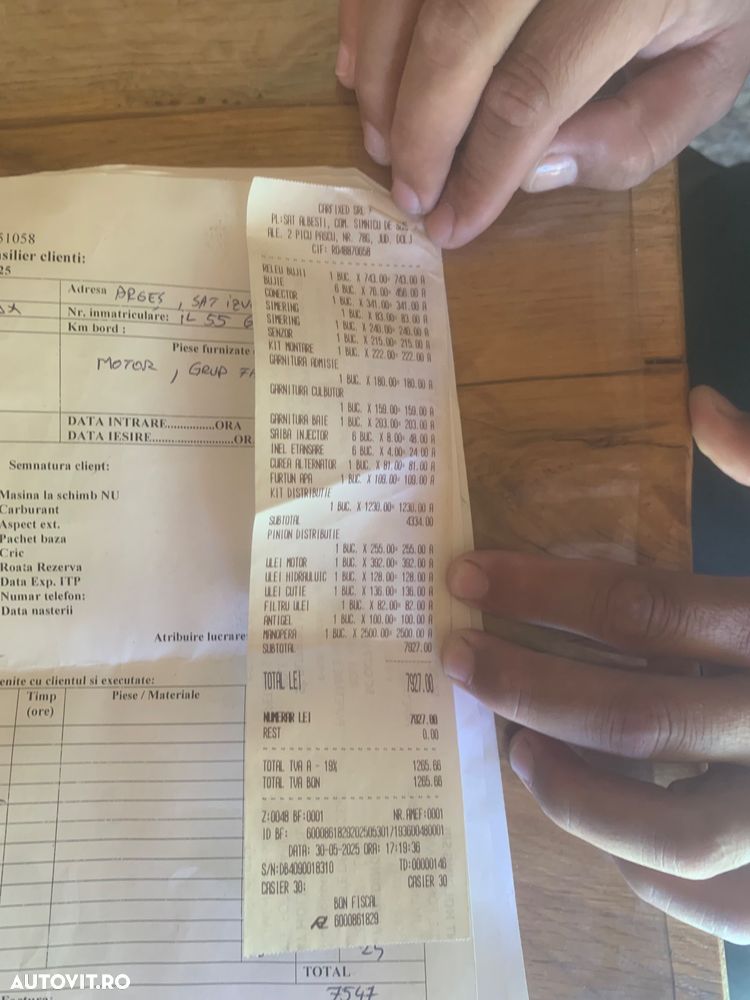 51058
silier clienti:
25
Adresa ARGEȘ, SAT IZV
Nr. inmatriculare: IL 55 G
Km bord :
Piese furnizate
MOTOR, GRUP FA
DATA INTRARE...............ORA
DATA IESIRE..................OR
Semnatura client:
Masina la schimb NU
Carburant
Aspect ext.
Pachet baza
Cric
Roata Rezerva
Data Exp. ITP
Numar telefon:
Data nasterii
Atribuire lucrare
enite cu clientul si executate:
Timp (ore)
Piese / Materiale
TOTAL
7547
Factura:
CARFIXED SRL
PL:SAT ALBESTI, COM. SIMNICU DE SUS
ALE. 2 PICU PASCU, NR. 78G, JUD. DOLJ
CIF: RO48870058
RELEU BUJII 1 BUC. X 743.00= 743.00 A
BUJIE 6 BUC. X 76.00= 456.00 A
CONECTOR 1 BUC. X 341.00= 341.00 A
SIMERING 1 BUC. X 83.00= 83.00 A
SIMERING 1 BUC. X 240.00= 240.00 A
SENZOR 1 BUC. X 215.00= 215.00 A
KIT MONTARE 1 BUC. X 222.00= 222.00 A
GARNITURA ADMISIE
1 BUC. X 180.00= 180.00 A
GARNITURA CULBUTOR
1 BUC. X 159.00= 159.00 A
GARNITURA BAIE 1 BUC. X 203.00= 203.00 A
SAIBA INJECTOR 6 BUC. X 8.00= 48.00 A
INEL ETANSARE 6 BUC. X 4.00= 24.00 A
CUREA ALTERNATOR 1 BUC. X 81.00= 81.00 A
FURTUN APA 1 BUC. X 109.00= 109.00 A
KIT DISTRIBUTIE
1 BUC. X 1230.00= 1230.00 A
SUBTOTAL 4334.00
PINION DISTRIBUTIE
1 BUC. X 255.00= 255.00 A
ULEI MOTOR 1 BUC. X 392.00= 392.00 A
ULEI HIDRAULUIC 1 BUC. X 128.00= 128.00 A
ULEI CUTIE 1 BUC. X 136.00= 136.00 A
FILTRU ULEI 1 BUC. X 82.00= 82.00 A
ANTIGEL 1 BUC. X 100.00= 100.00 A
MANOPERA 1 BUC. X 2500.00= 2500.00 A
SUBTOTAL 7927.00
TOTAL LEI 7927.00
NUMERAR LEI 7927.00
REST 0.00
TOTAL TVA A - 19% 1265.66
TOTAL TVA BON 1265.66
Z:0048 BF:0001 NR.AMEF:0001
ID BF: 60008618292025053017193600480001
DATA: 30-05-2025 ORA: 17:19:36
S/N:DB4090018310 TD:00000146
CASIER 30: CASIER 30
BON FISCAL
6000861829
AUTOVIT.RO